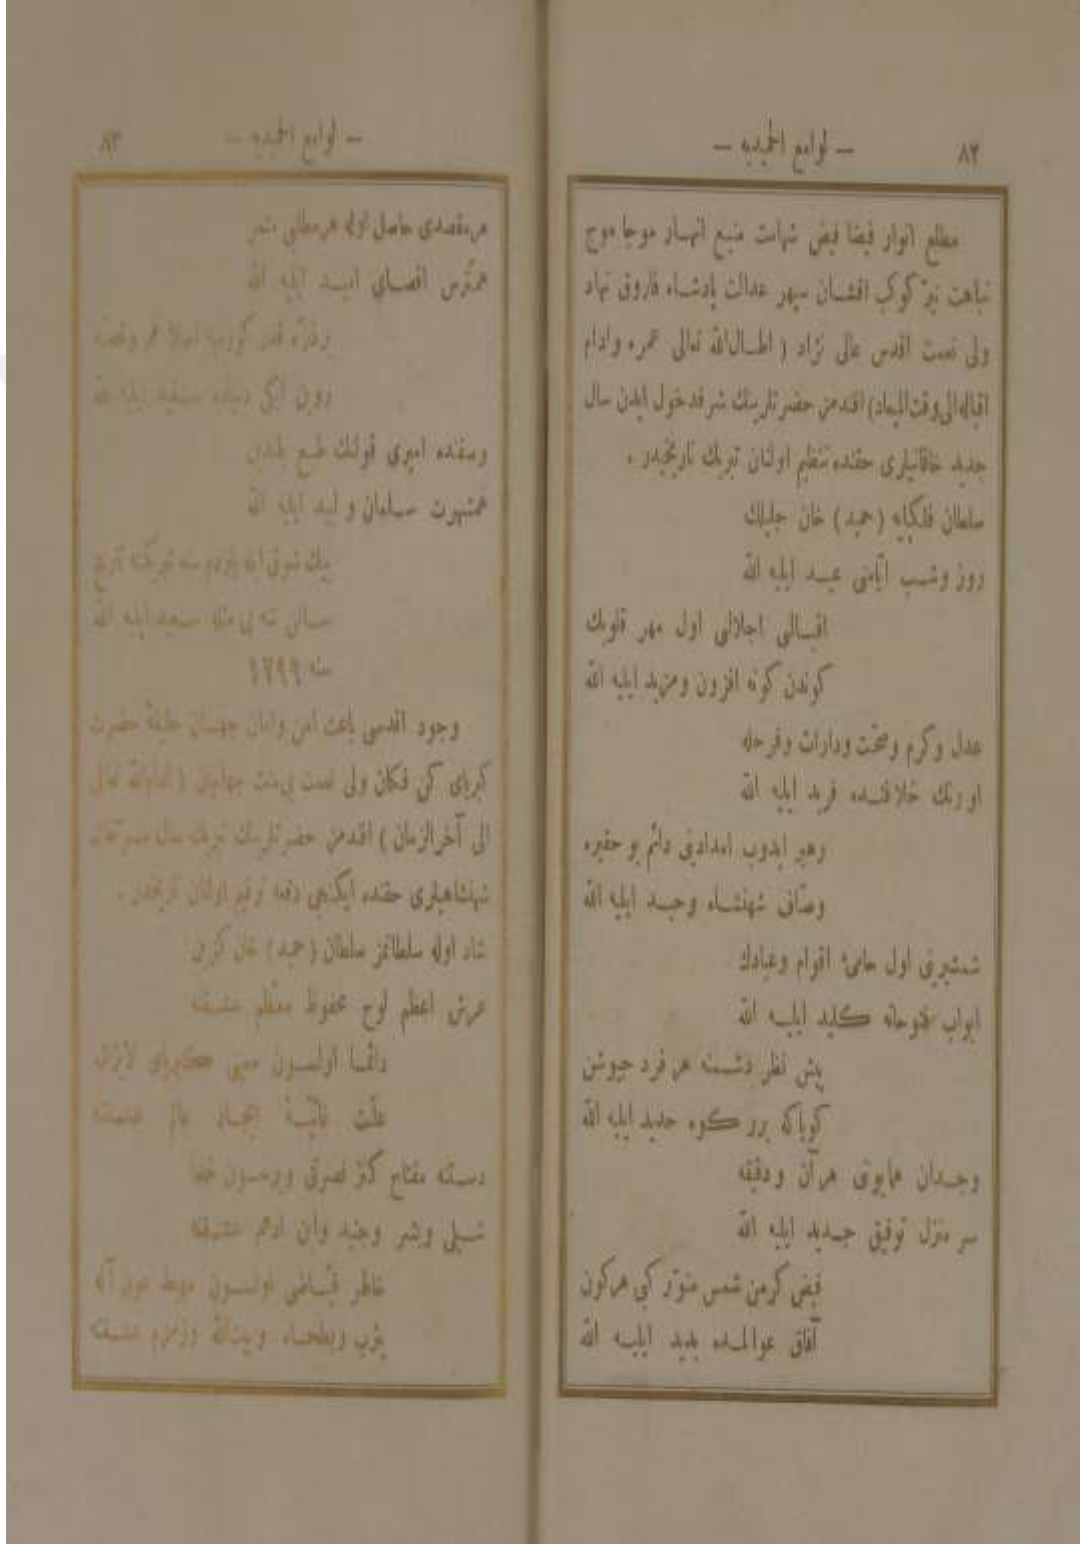 ٨٢
— لوامع الحميديه —
مطلع انوار فيضا فيض شهامت منبع انهار موجا موج
نباهت نير كوكب افشان سپهر عدالت پادشاه فاروق نهاد
ولى نعمت اقدس عالى نژاد ( اطال‌الله تعالى عمره وادام
اقباله الى وقت الميعاد) افندمز حضرتلرينك شرفدخول ايدن سال
جديد خاقانيلرى حقنده تنظيم اولنان تبريك تاريخيدر .
سلطان فلكپايه (حميد) خان جليلك
روز وشب ايّامنى عيد ايليه الله
اقبالى اجلالى اول مهر قلوبك
كوندن كونه افزون ومزيد ايليه الله
عدل وكرم وصحّت ودارات وفرحله
اورنك خلافتده فريد ايليه الله
رهبر ايدوب امدادينى دائم بو حقيره
وصّافى شهنشاه وحيد ايليه الله
شمشيرينى اول حامئ اقوام وعبادك
ابواب فتوحاته كليد ايليه الله
پيش نظر دشمنه هر فرد جيوشن
كويا كه برر كوه حديد ايليه الله
وجدان همايونى هر آن ودقيقه
سر منزل توفيق جديد ايليه الله
فيض كرمن شمس منوّر كبى هركون
آفاق عوالمده پديد ايليه الله
٨٣
— لوامع الحميديه —
هرمقصدى حاصل اوله هرمطلبى مثمر
اقصاى اميد ايليه الله
قدر كورميه اصلا غم وغصّه
ايكى دنياده سعيد ايليه الله
وصفنده اميرى قولنك طبع بلندن
همشهرت سلمان و لبيد ايليه الله
تبريكنه تاريخ
سالن شه بى مثله سعيد ايليه الله
سنه ١٢٩٩
وجود اقدسى باعث امن وامان جهان خليفۀ حضرت
كبرياى كن فكان ولى نعمت بى‌منت جهانيان ( ادام‌الله تعالى
الى آخرالزمان ) افندمز حضرتلرينك تبريك سال
شهنشاهيلرى حقنده ايكنجى دفعه ترقيم اولنان تاريخدر .
شاد اوله سلطانمز سلطان (حميد) خان كزين
عرش اعظم لوح محفوظ معظّم عشقنه
دائما اولسون معينى كبرياى لايزال
علّت غائيۀ ايجاد عالم عشقنه
دستنه مفتاح كنز نصرتى ويرسون خدا
شبلى وبشر وجنيد وابن ادهم عشقنه
خاطر فيّاضى اولسون مهبط عون آله
يثرب وبطحاء وبيت‌الله وزمزم عشقنه